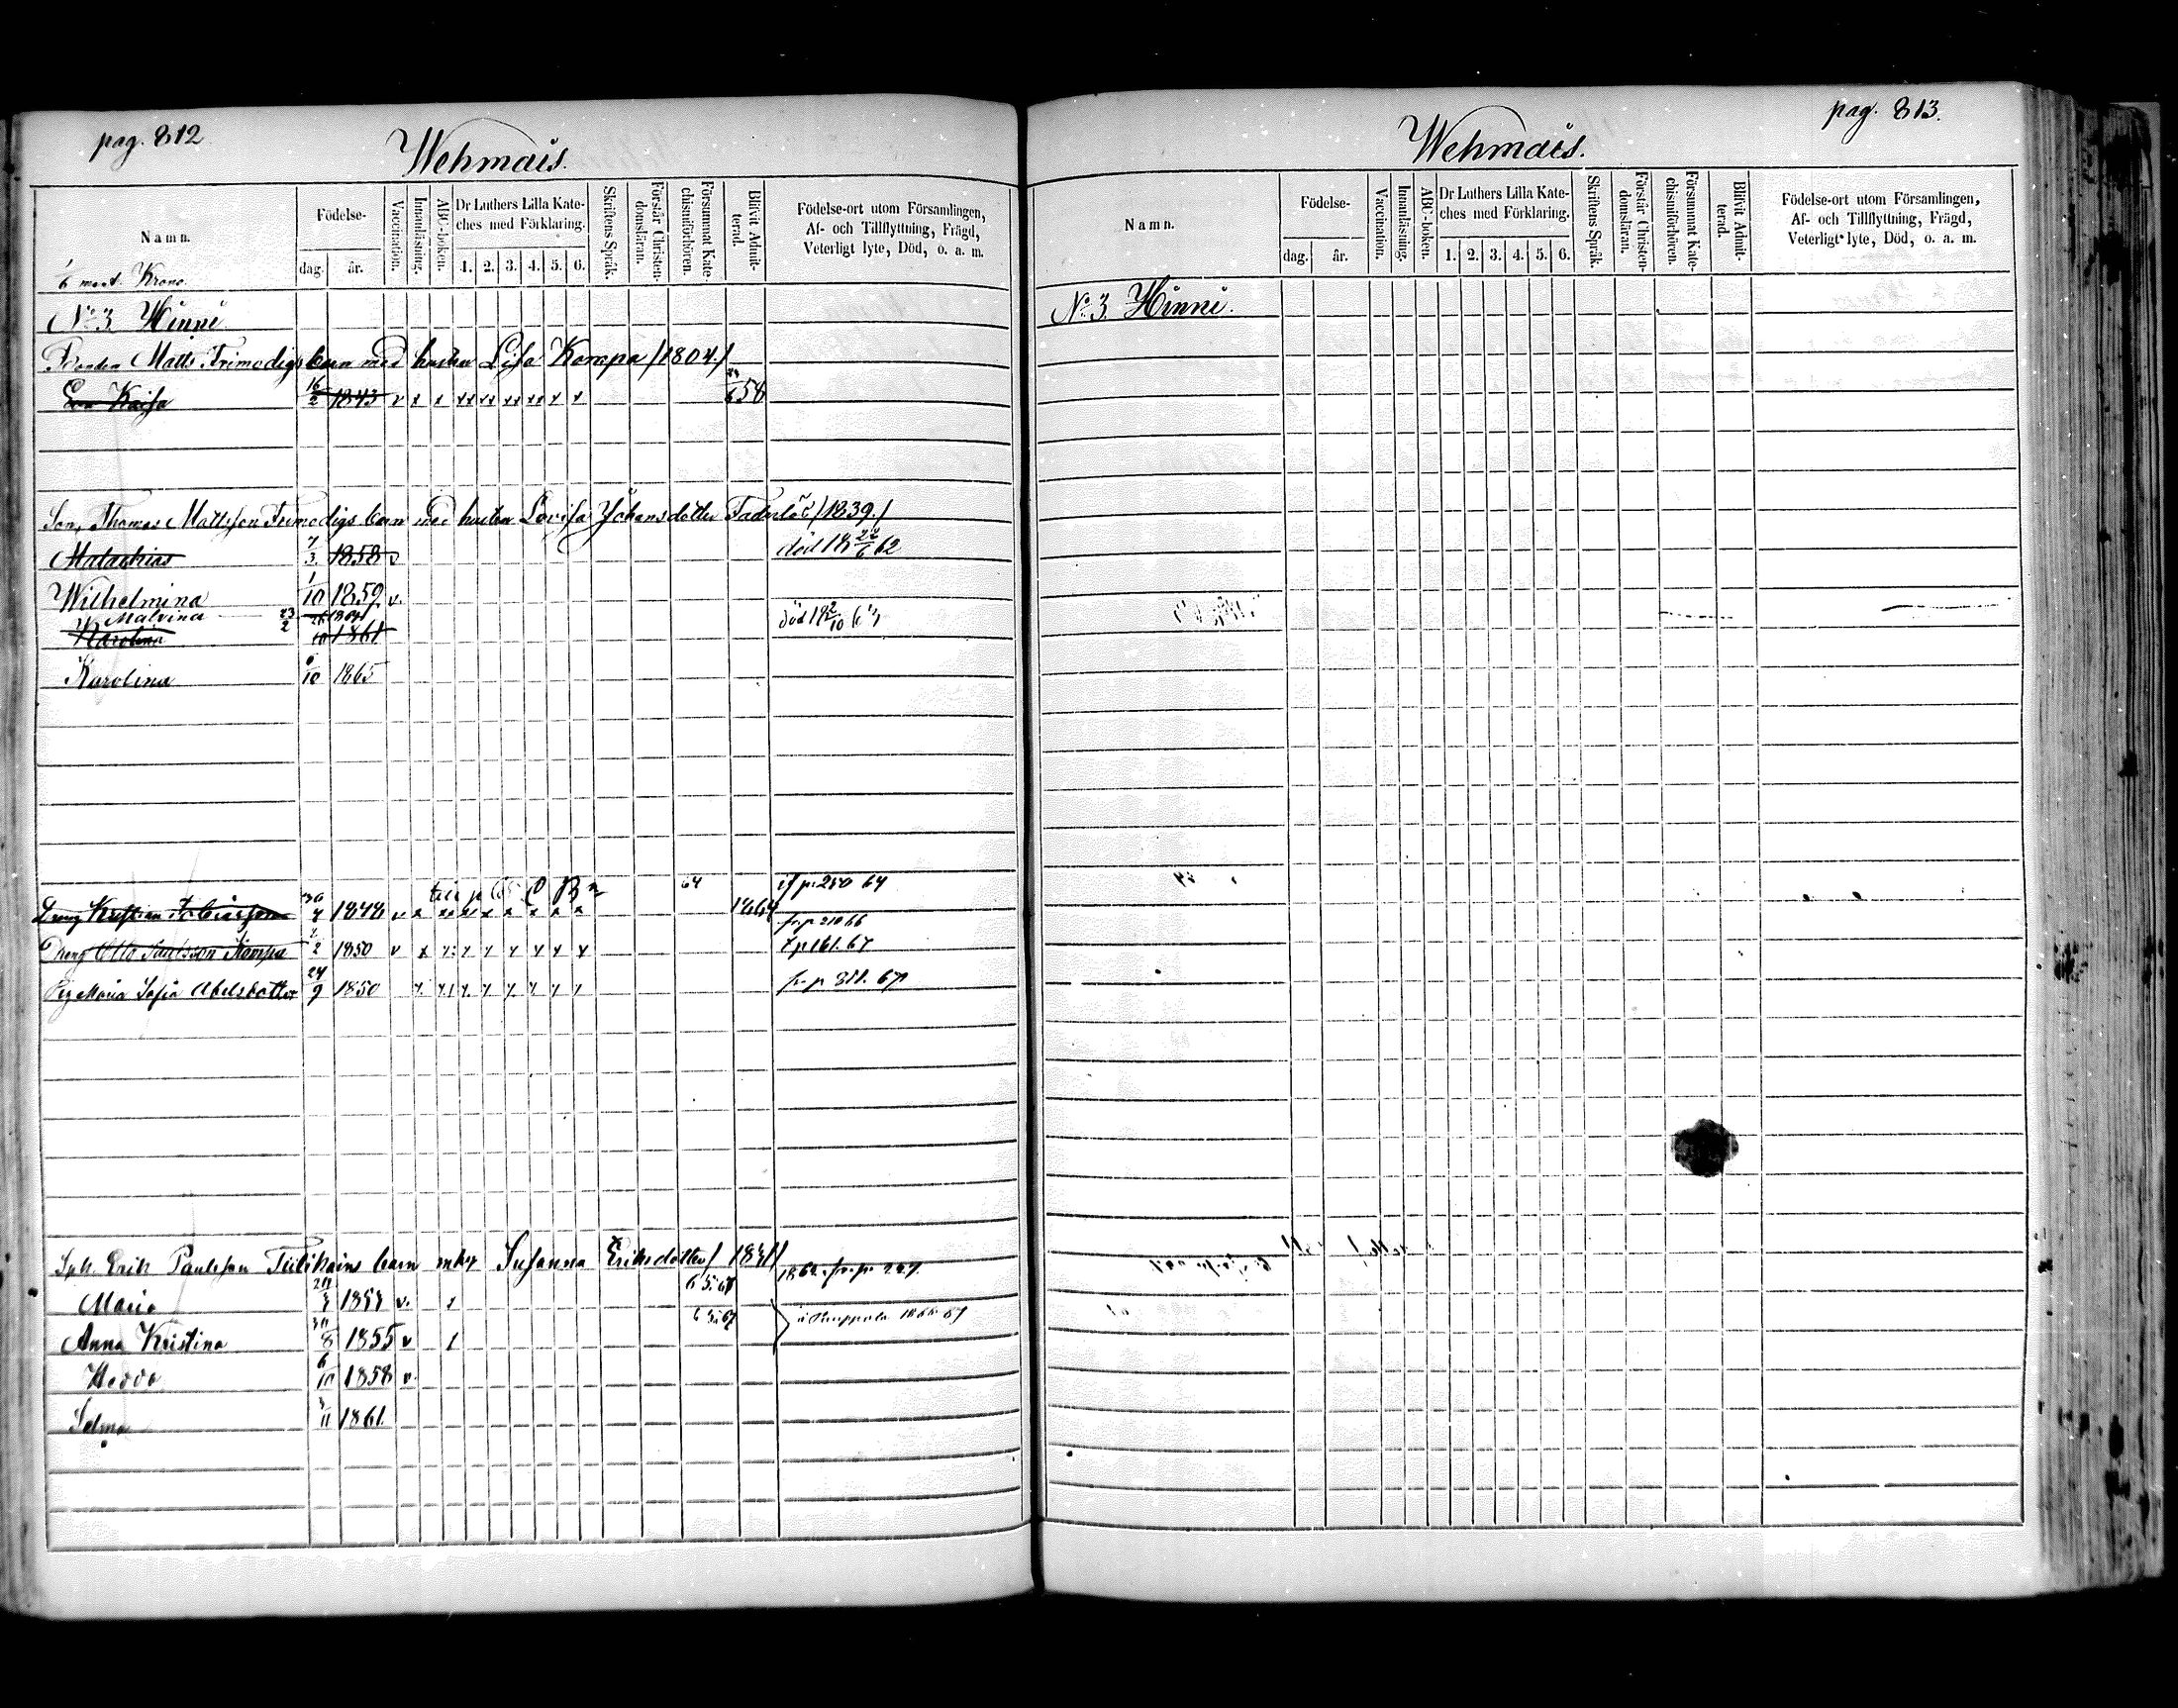 pag. 812
Wehmais.
Namn.
Födelse-
dag. år.
Vaccination.
Innanläsning.
ABC-boken.
Dr Luthers Lilla Kate-
ches med Förklaring.
1. 2. 3. 4. 5. 6.
Skriftens Språk.
Förstår Christen-
domsläran.
Försummat Kate-
chismiförhören.
Blifvit Admit-
terad.
Födelse-ort utom Församlingen,
Af- och Tillflyttning, Frägd,
Veterligt lyte, Död, o. a. m.
1/6 mant. Krono
No 3 Hinni
Bonden Matts Frimodigs barn med hustru Lisa Kompa /1804./
Eva Kaisa 16/2 1843 v x x xx xx xx xx x x 58
Son, Thomas Mattsson Frimodigs barn med hustru Lovisa Johansdotter /1839./
Malachias 7/3 1858 v död 18 22/6 62
Wilhelmina 1/10 1859 v.
Malvina 23/2
Karolina 1861 död 18 2/10 63
Karolina 6/10 1865
Dreng Kristian Tobiasson 30/4 1848 v x xx xx x x x x x 64 1864 if p. 250 64
fr p 210 66
Dreng Otto Paulsson Kompa 2/2 1850 v x x x x x x x x t p 161. 67
Pig Maria Sofia Abelsdotter 24/9 1850 fr p 311. 67
Sph. Erik Paulsson Tiilikains barn m hu Susanna Eriksdotter / 1831 / 1862 fr. p. 227.
Maria v. 1
Anna Kristina 30/8 1855 v 1 1866-67
Hedda 6/10 1858 v.
Selma 3/11 1861.
pag. 813.
Wehmais.
Namn.
Födelse-
dag. år.
Vaccination.
Innanläsning.
ABC-boken.
Dr Luthers Lilla Kate-
ches med Förklaring.
1. 2. 3. 4. 5. 6.
Skriftens Språk.
Förstår Christen-
domsläran.
Försummat Kate-
chismiförhören.
Blifvit Admit-
terad.
Födelse-ort utom Församlingen,
Af- och Tillflyttning, Frägd,
Veterligt lyte, Död, o. a. m.
No 3 Hinni.